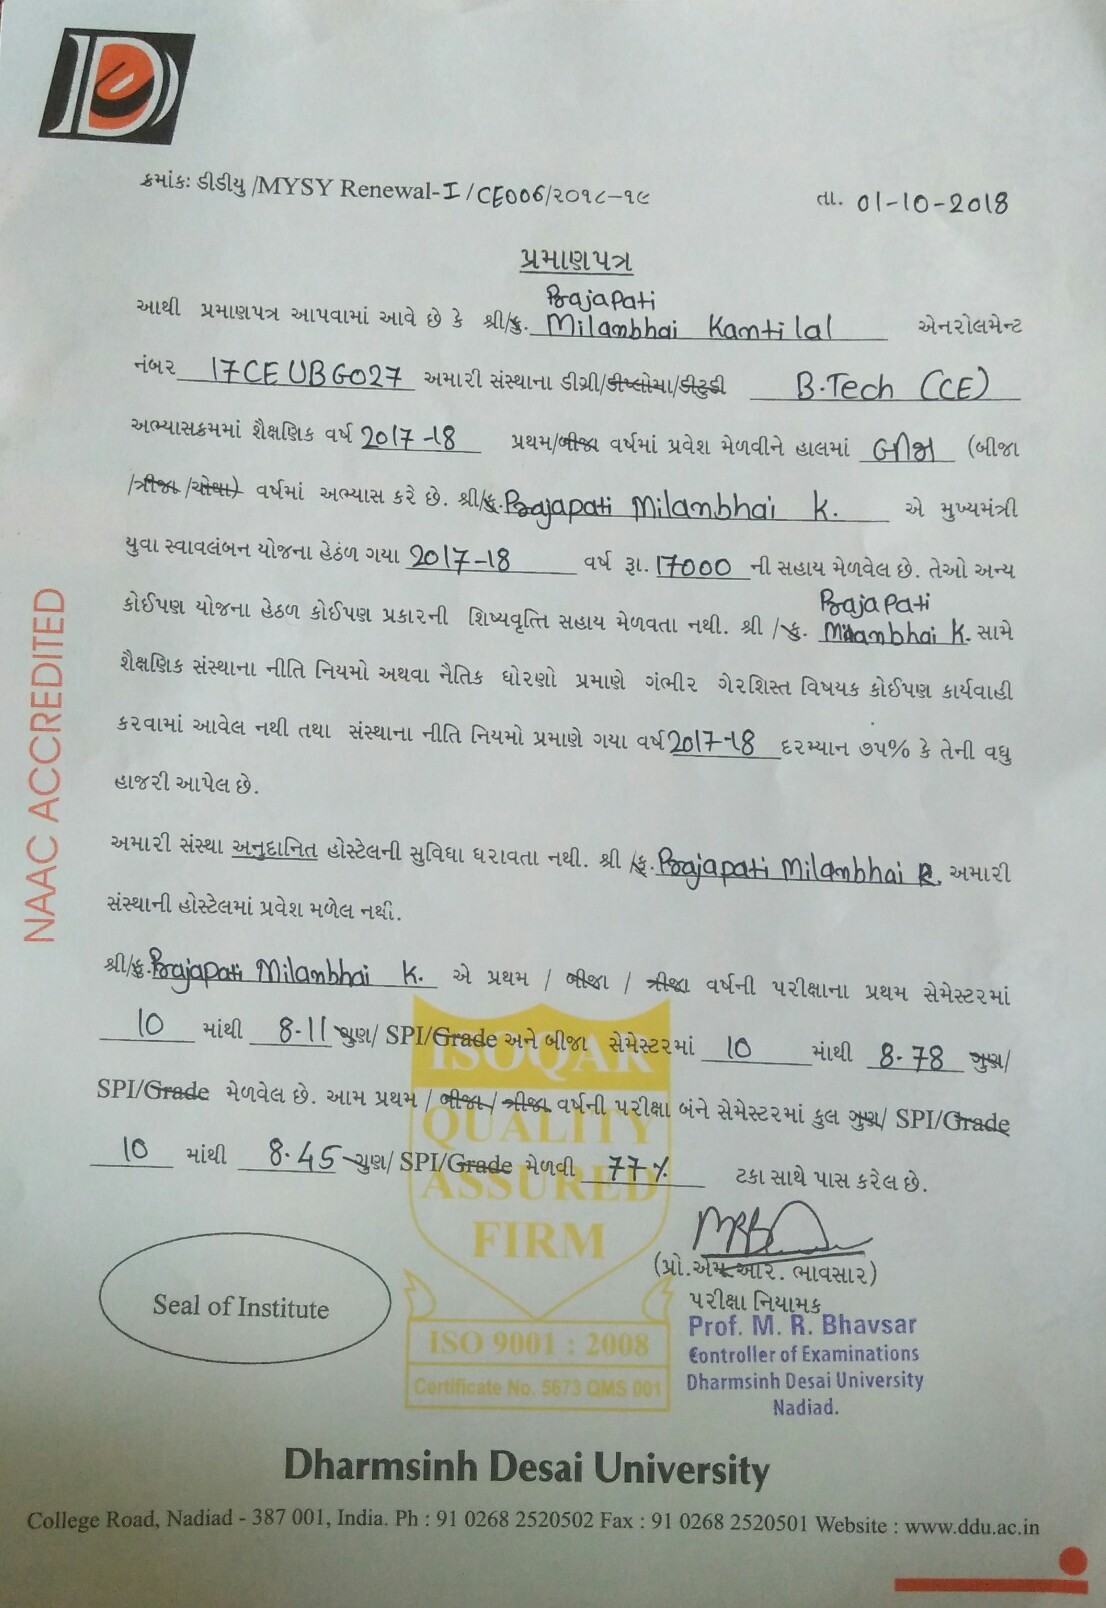 ક્રમાંકઃ ડીડીયુ /MYSY Renewal-I/CE006/૨૦૧૮-૧૯
તા. 01-10-2018
પ્રમાણપત્ર
આથી પ્રમાણપત્ર આપવામાં આવે છે કે શ્રી/કુ. Prajapati Milanbhai Kantilal એનરોલમેન્ટ
નંબર 17CEUBG027 અમારી સંસ્થાના ડીગ્રી/ડીપ્લોમા/ડીટુડી B.Tech (CE)
અભ્યાસક્રમમાં શૈક્ષણિક વર્ષ 2017-18 પ્રથમ/બીજા વર્ષમાં પ્રવેશ મેળવીને હાલમાં બીજા (બીજા
/ત્રીજા /ચોથા) વર્ષમાં અભ્યાસ કરે છે. શ્રી/કુ. Prajapati Milanbhai K. એ મુખ્યમંત્રી
યુવા સ્વાવલંબન યોજના હેઠળ ગયા 2017-18 વર્ષ રૂા. 17000 ની સહાય મેળવેલ છે. તેઓ અન્ય
કોઈપણ યોજના હેઠળ કોઈપણ પ્રકારની શિષ્યવૃત્તિ સહાય મેળવતા નથી. શ્રી /કુ. Prajapati Milanbhai K. સામે
શૈક્ષણિક સંસ્થાના નીતિ નિયમો અથવા નૈતિક ધોરણો પ્રમાણે ગંભીર ગેરશિસ્ત વિષયક કોઈપણ કાર્યવાહી
કરવામાં આવેલ નથી તથા સંસ્થાના નીતિ નિયમો પ્રમાણે ગયા વર્ષ 2017-18 દરમ્યાન ૭૫% કે તેની વધુ
હાજરી આપેલ છે.
અમારી સંસ્થા અનુદાનિત હોસ્ટેલની સુવિધા ધરાવતા નથી. શ્રી /કુ. Prajapati Milanbhai K. અમારી
સંસ્થાની હોસ્ટેલમાં પ્રવેશ મળેલ નથી.
શ્રી/કુ. Prajapati Milanbhai K. એ પ્રથમ / બીજા / ત્રીજા વર્ષની પરીક્ષાના પ્રથમ સેમેસ્ટરમાં
10 માંથી 8.11 ગુણ/ SPI/Grade અને બીજા સેમેસ્ટરમાં 10 માંથી 8.78 ગુણ/
SPI/Grade મેળવેલ છે. આમ પ્રથમ / બીજા / ત્રીજા વર્ષની પરીક્ષા બંને સેમેસ્ટરમાં કુલ ગુણ/ SPI/Grade
10 માંથી 8.45 ગુણ/ SPI/Grade મેળવી 77% ટકા સાથે પાસ કરેલ છે.
(પ્રો.એમ.આર. ભાવસાર)
પરીક્ષા નિયામક
Prof. M. R. Bhavsar
Controller of Examinations
Dharmsinh Desai University
Nadiad.
Seal of Institute
ISOQAR
QUALITY
ASSURED
FIRM
ISO 9001 : 2008
Certificate No. 5673 QMS 001
NAAC ACCREDITED
Dharmsinh Desai University
College Road, Nadiad - 387 001, India. Ph : 91 0268 2520502 Fax : 91 0268 2520501 Website : www.ddu.ac.in